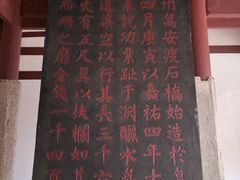 州萬安渡石橋始造於
四月庚寅以嘉祐四年十
訖功絫趾于淵釃水
梁空以行其長三千六
丈有五尺翼以扶欄如其
而兩之靡金錢一千四百